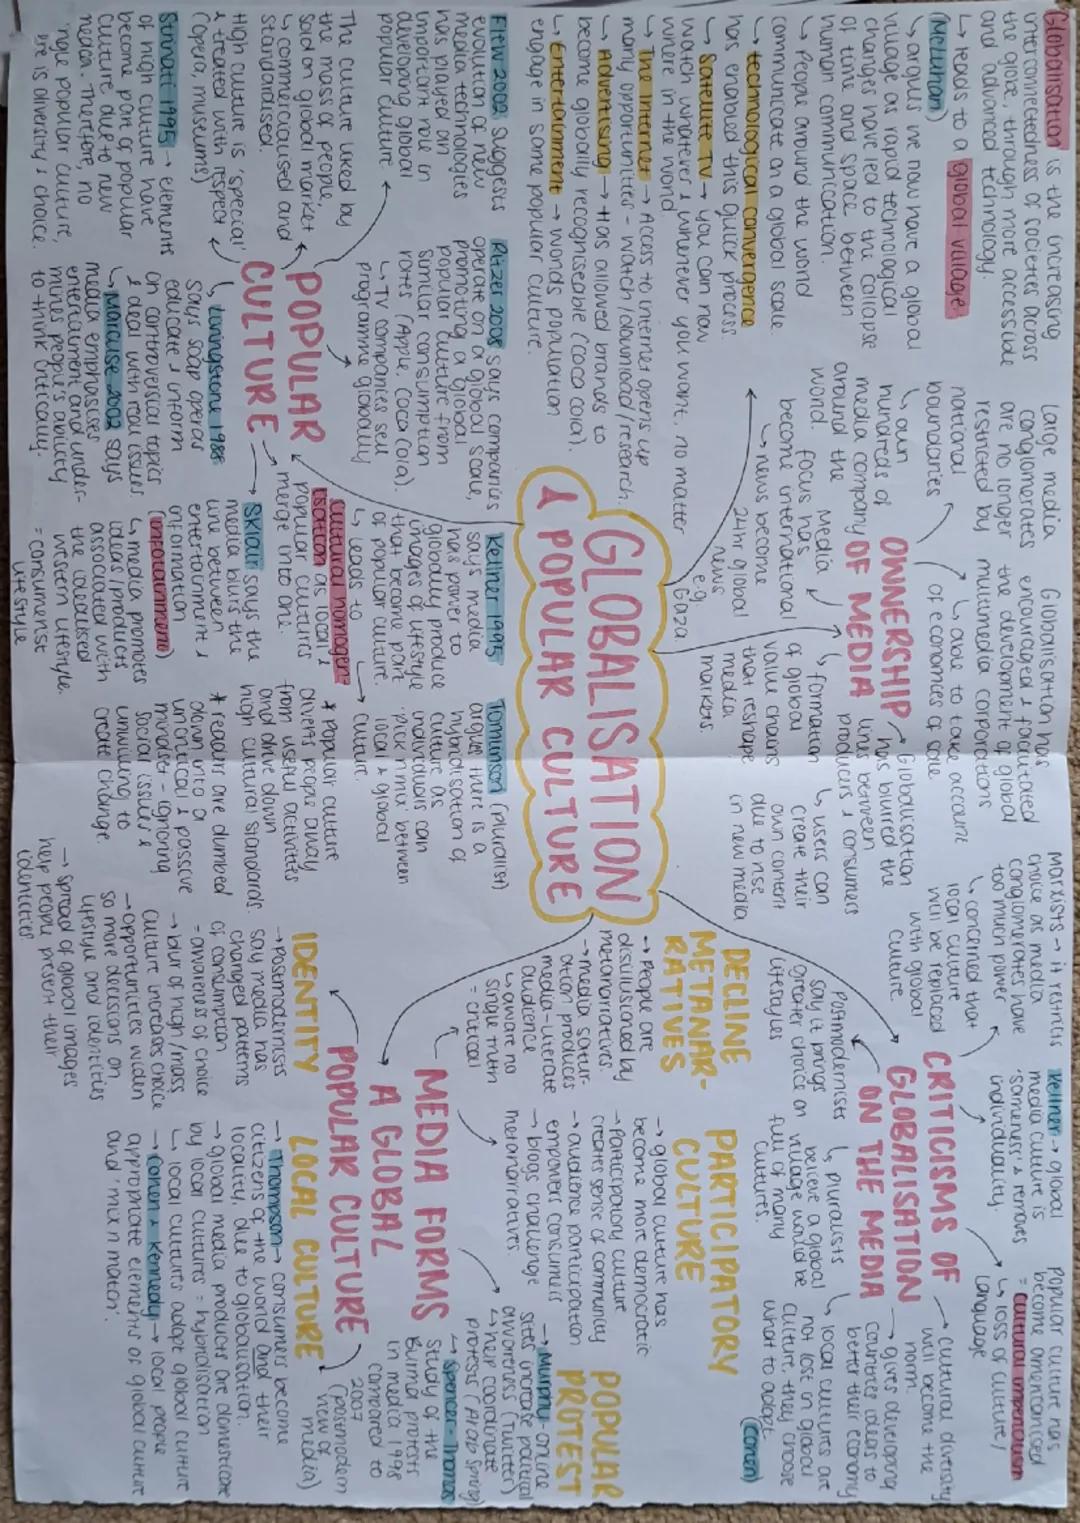 Globalisation is the increasing
interconnectedness of societies across
the globe, through more accessible
and advanced technology.
↳ leads to a global village
(McLuhan)
↳ argues we now have a global
village as rapid technological
changes have led to the collapse
of time and space between
human communication.
↳ People around the world
communicate on a global scale.
→ technological convergence
has enabled this quick process.
↳ Satellite TV → you can now
watch whatever & whenever you want, no matter
where in the world.
→ The internet → Access to internet opens up
many opportunities - watch/download/research.
→ Advertising → Has allowed brands to
become globally recognisable (coca cola).
↳ Entertainment → Worlds population
engage in same popular culture.
Large media
conglomerates
are no longer
restricted by
national
boundaries
↳ own
hundreds of
media company
around the
world.
Globalisation has
encouraged & facilitated
the development of global
multimedia corporations
↳ able to take account
of economies of scale
OWNERSHIP
OF MEDIA
Globalisation
has blurred the
lines between
producers & consumers
↳ users can
create their
own content
due to rise
in new media
↳ formation
of global
value chains
that reshape
media
markets.
Media
focus has
become international
↳ news become
24hr global
news
e.g.
Gaza
Marxists → it restricts
choice as media
conglomerates have
too much power
↳ concerned that
local culture
will be replaced
with global
culture.
Kellner → global
media culture is
'sameness' & removes
individuality.
Popular culture has
become americanised
= cultural imperialism
↳ loss of culture/
language
CRITICISMS OF
GLOBALISATION
ON THE MEDIA
→ cultural diversity
will become the
norm.
→ gives developing
countries ideas to
better their economy
Postmodernists
say it brings
greater choice on
lifestyles
↳ pluralists
believe a global
village would be
full of many
cultures.
↳ local cultures are
not lost in global
culture, they choose
what to adopt.
(Cohen)
GLOBALISATION
& POPULAR CULTURE
Flew 2002 suggests
evolution of new
media technologies
has played an
important role in
developing global
popular culture.
Ritzer 2008 says companies
operate on a global scale,
promoting a global
popular culture from
similar consumption
rates (Apple, Coca Cola).
↳ TV companies sell
programme globally
Kellner 1995
says media
has power to
globally produce
images of lifestyle
that become part
of popular culture.
↳ leads to
cultural homogen-
isation as local &
popular cultures
merge into one.
Tomlinson (pluralist)
argues there is a
hybridisation of
culture as
individuals can
'pick n mix' between
local & global
culture.
The culture liked by
the mass of people,
sold on global market
↳ commercialised and
standardised.
POPULAR
CULTURE
High culture is 'special'
& treated with respect
(opera, museums)
Strinati 1995 → elements
of high culture have
become part of popular
culture due to new
media. Therefore, no
'single' popular culture,
there is diversity & choice.
↳ Livingstone 1988
says soap operas
educate & inform
on controversial topics
& deal with real issues
↳ Marcuse 2002 says
media emphasises
entertainment and under-
mines people's ability
to think critically.
→ Sklair says the
media blurs the
line between
entertainment &
information
(infotainment)
↳ media promotes
ideas/products
associated with
the idealised
western lifestyle.
= consumerist
lifestyle
* Popular culture
diverts people away
from useful activities
and drive down
high cultural standards.
* readers are dumbed
down into a
uncritical & passive
mindset - ignoring
social issues &
unwilling to
create change.
DECLINE
METANAR-
RATIVES
→ People are
disillusioned by
metanarratives.
→ media satur-
ation produces
media-literate
audience
↳ aware no
single truth
= critical
PARTICIPATORY
CULTURE
→ global culture has
become more democratic
→ Participatory culture
creates sense of community
→ audience participation
empower consumers
→ blogs challenge
metanarratives.
POPULAR
PROTEST
→ Murphy - online
sites increase political
awareness (Twitter)
↳ help coordinate
protests (Arab Spring)
↳ Spencer-Thomas
study of the
Burma protests
in media 1998
compared to
2007
(postmodern
view of
media)
MEDIA FORMS
A GLOBAL
POPULAR CULTURE
IDENTITY
→ Postmodernists
say media has
changed patterns
of consumption
= awareness of choice
→ blur of high/mass
culture increases choice
→ opportunities widen
so more decisions on
lifestyle and identities
→ Spread of global images
help people present their
identities
LOCAL CULTURE
→ Thompson → consumers become
citizens of the world and their
locality, due to globalisation.
→ global media products are domesticate
by local cultures = hybridisation
↳ local cultures adapt global culture
→ Cohen & Kennedy → local people
appropriate elements of global culture
and 'mix n match'.